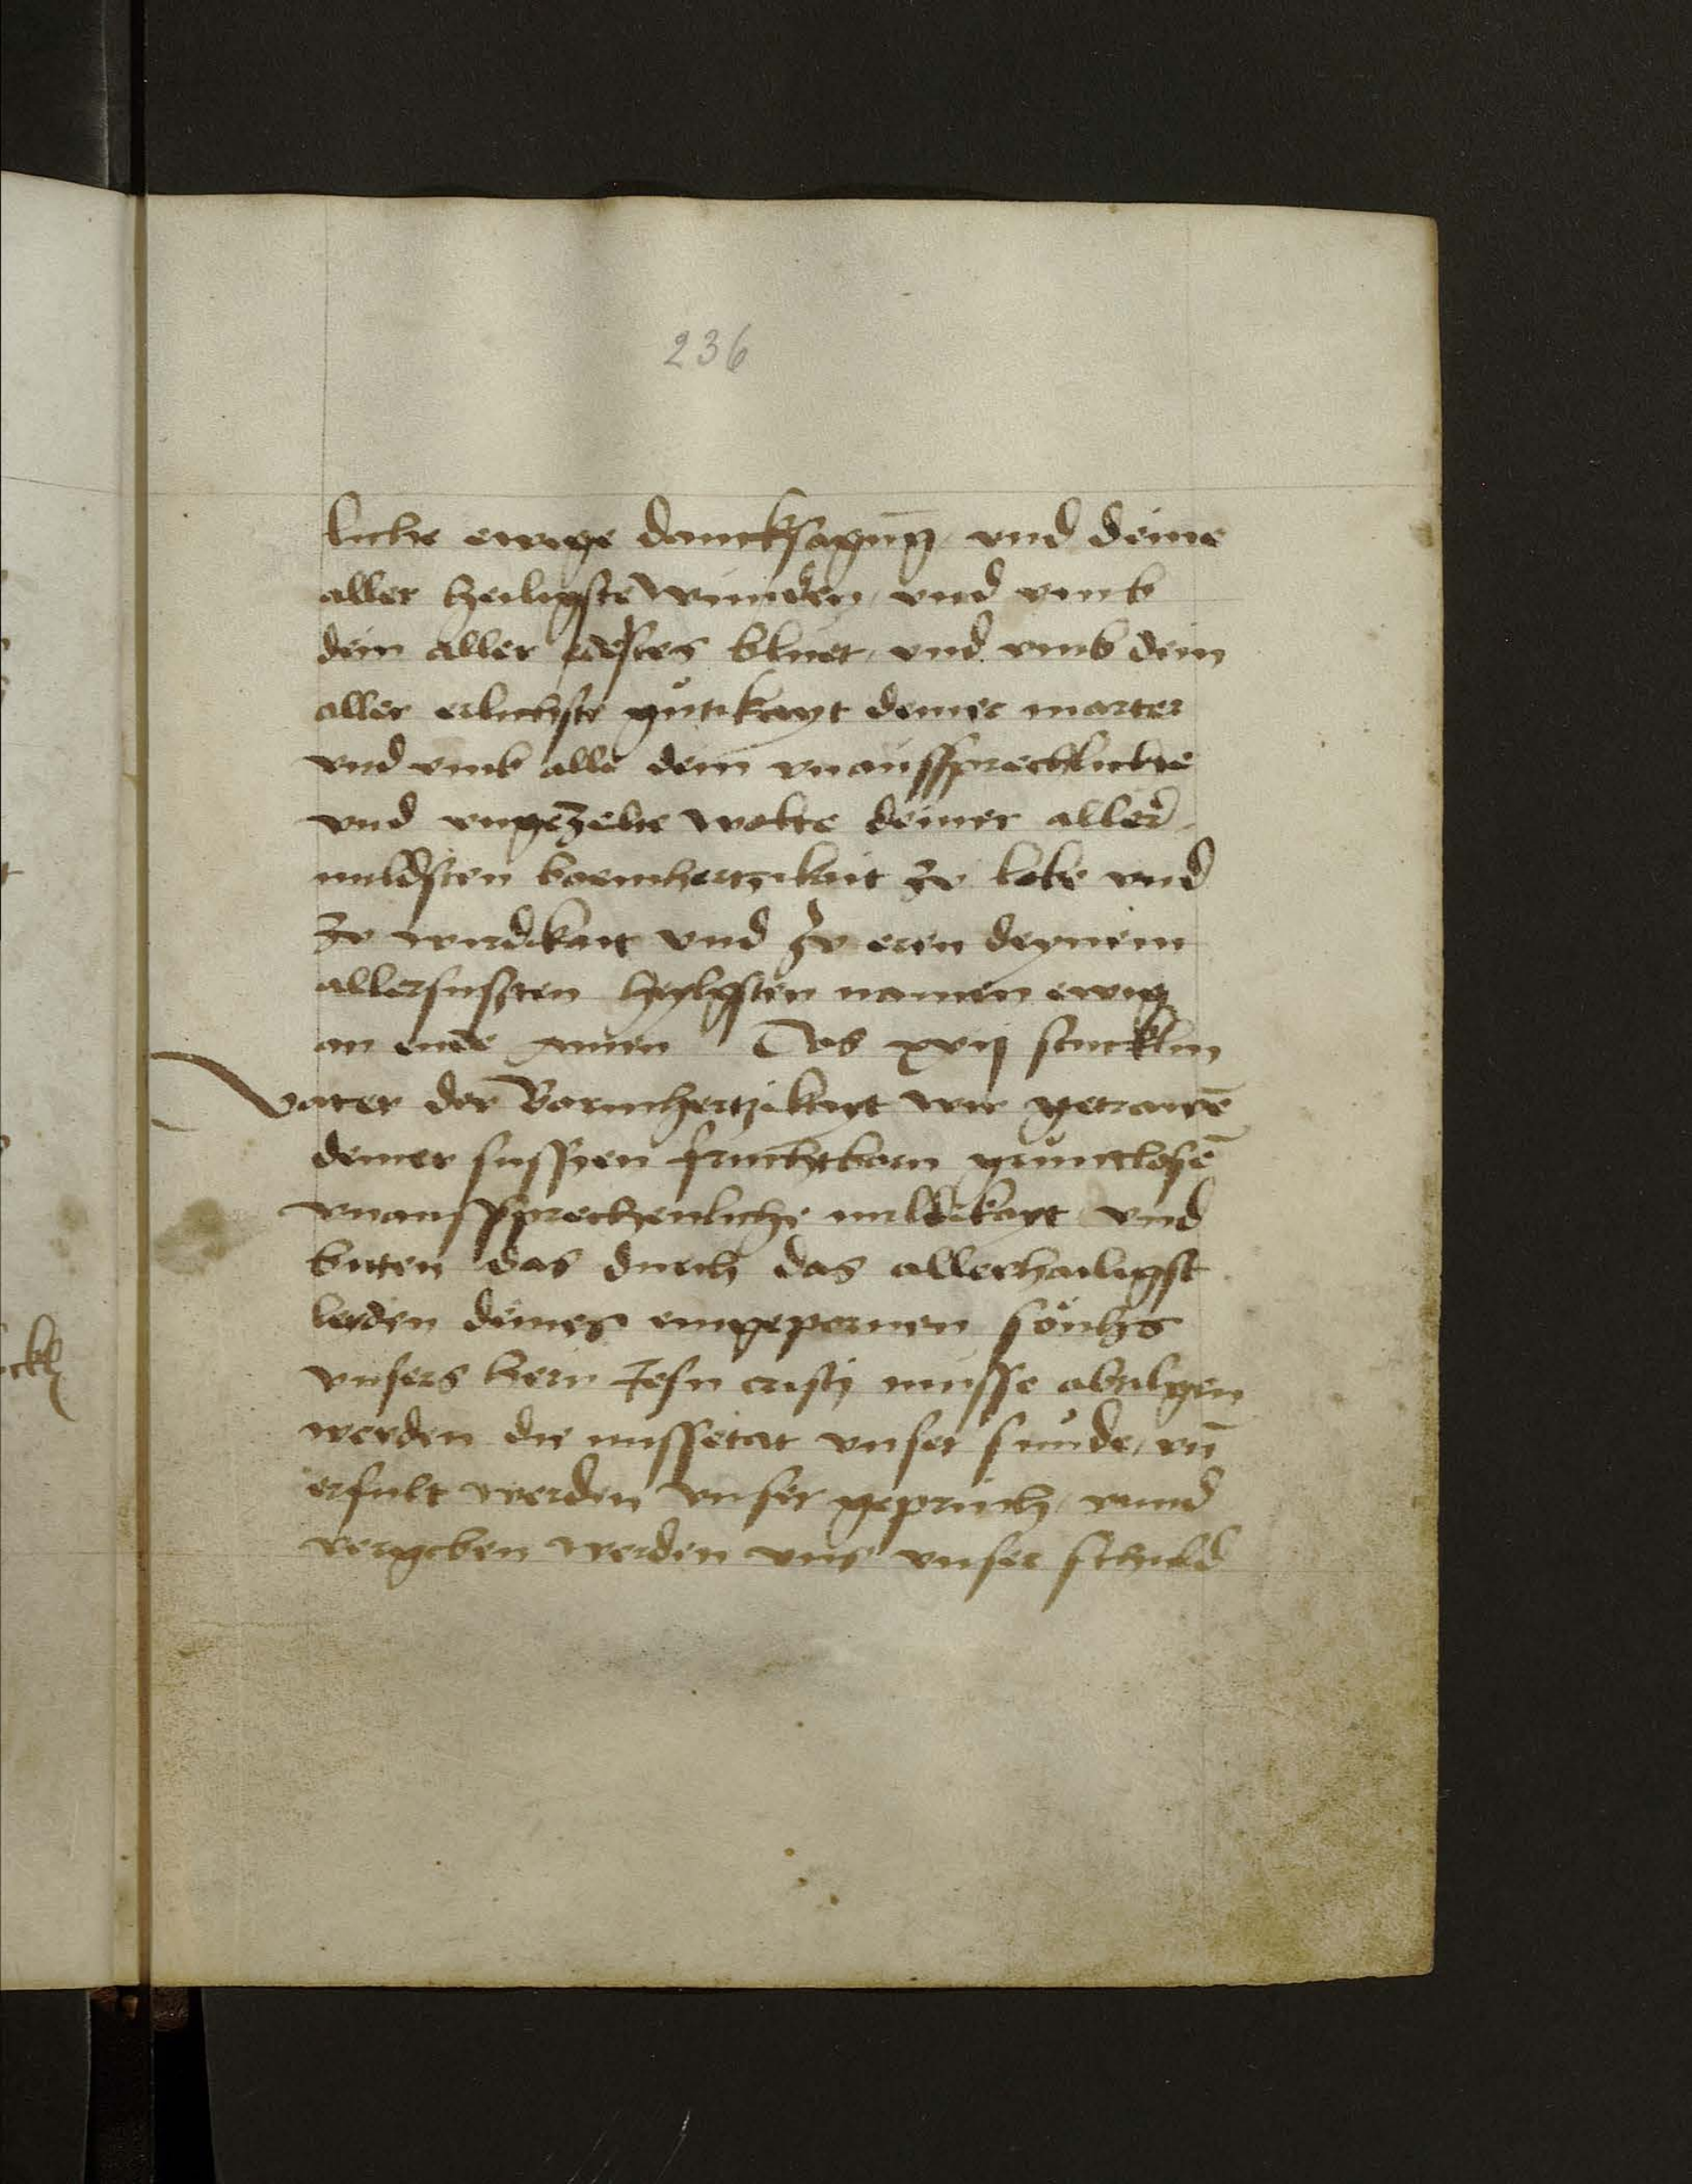 236
liche ewige dancksagung vnd deine
aller heiligste wunden vnd vmb
dein aller edestes bluet vnd vmb dein
aller erlichste gůtikayt deiner marter
vnd vmb alle dein vnaussprechliche
vnd vngezelte wolte deiner aller
mildsten barmhertzikait ze lobe vnd
ze wirdikait vnd ze eren deynem
allersusten heylgsten namen ewig
an ende Amen Das xvij stucklin
Vater der Barmhertzikayt wir getrawē
deiner susszen fruchtborn grůntlosē
vnausssprechenliche mildikayt vnd
biten das durch das allerhailigst
leiden deines eingepornen sönhs
vnsers hern Jesu cristj musse abtilgen
werden die missetat vnser sůnde vn̄
erfult werden vnser geprüch vnnd
vergeben werden vns vnser schuld